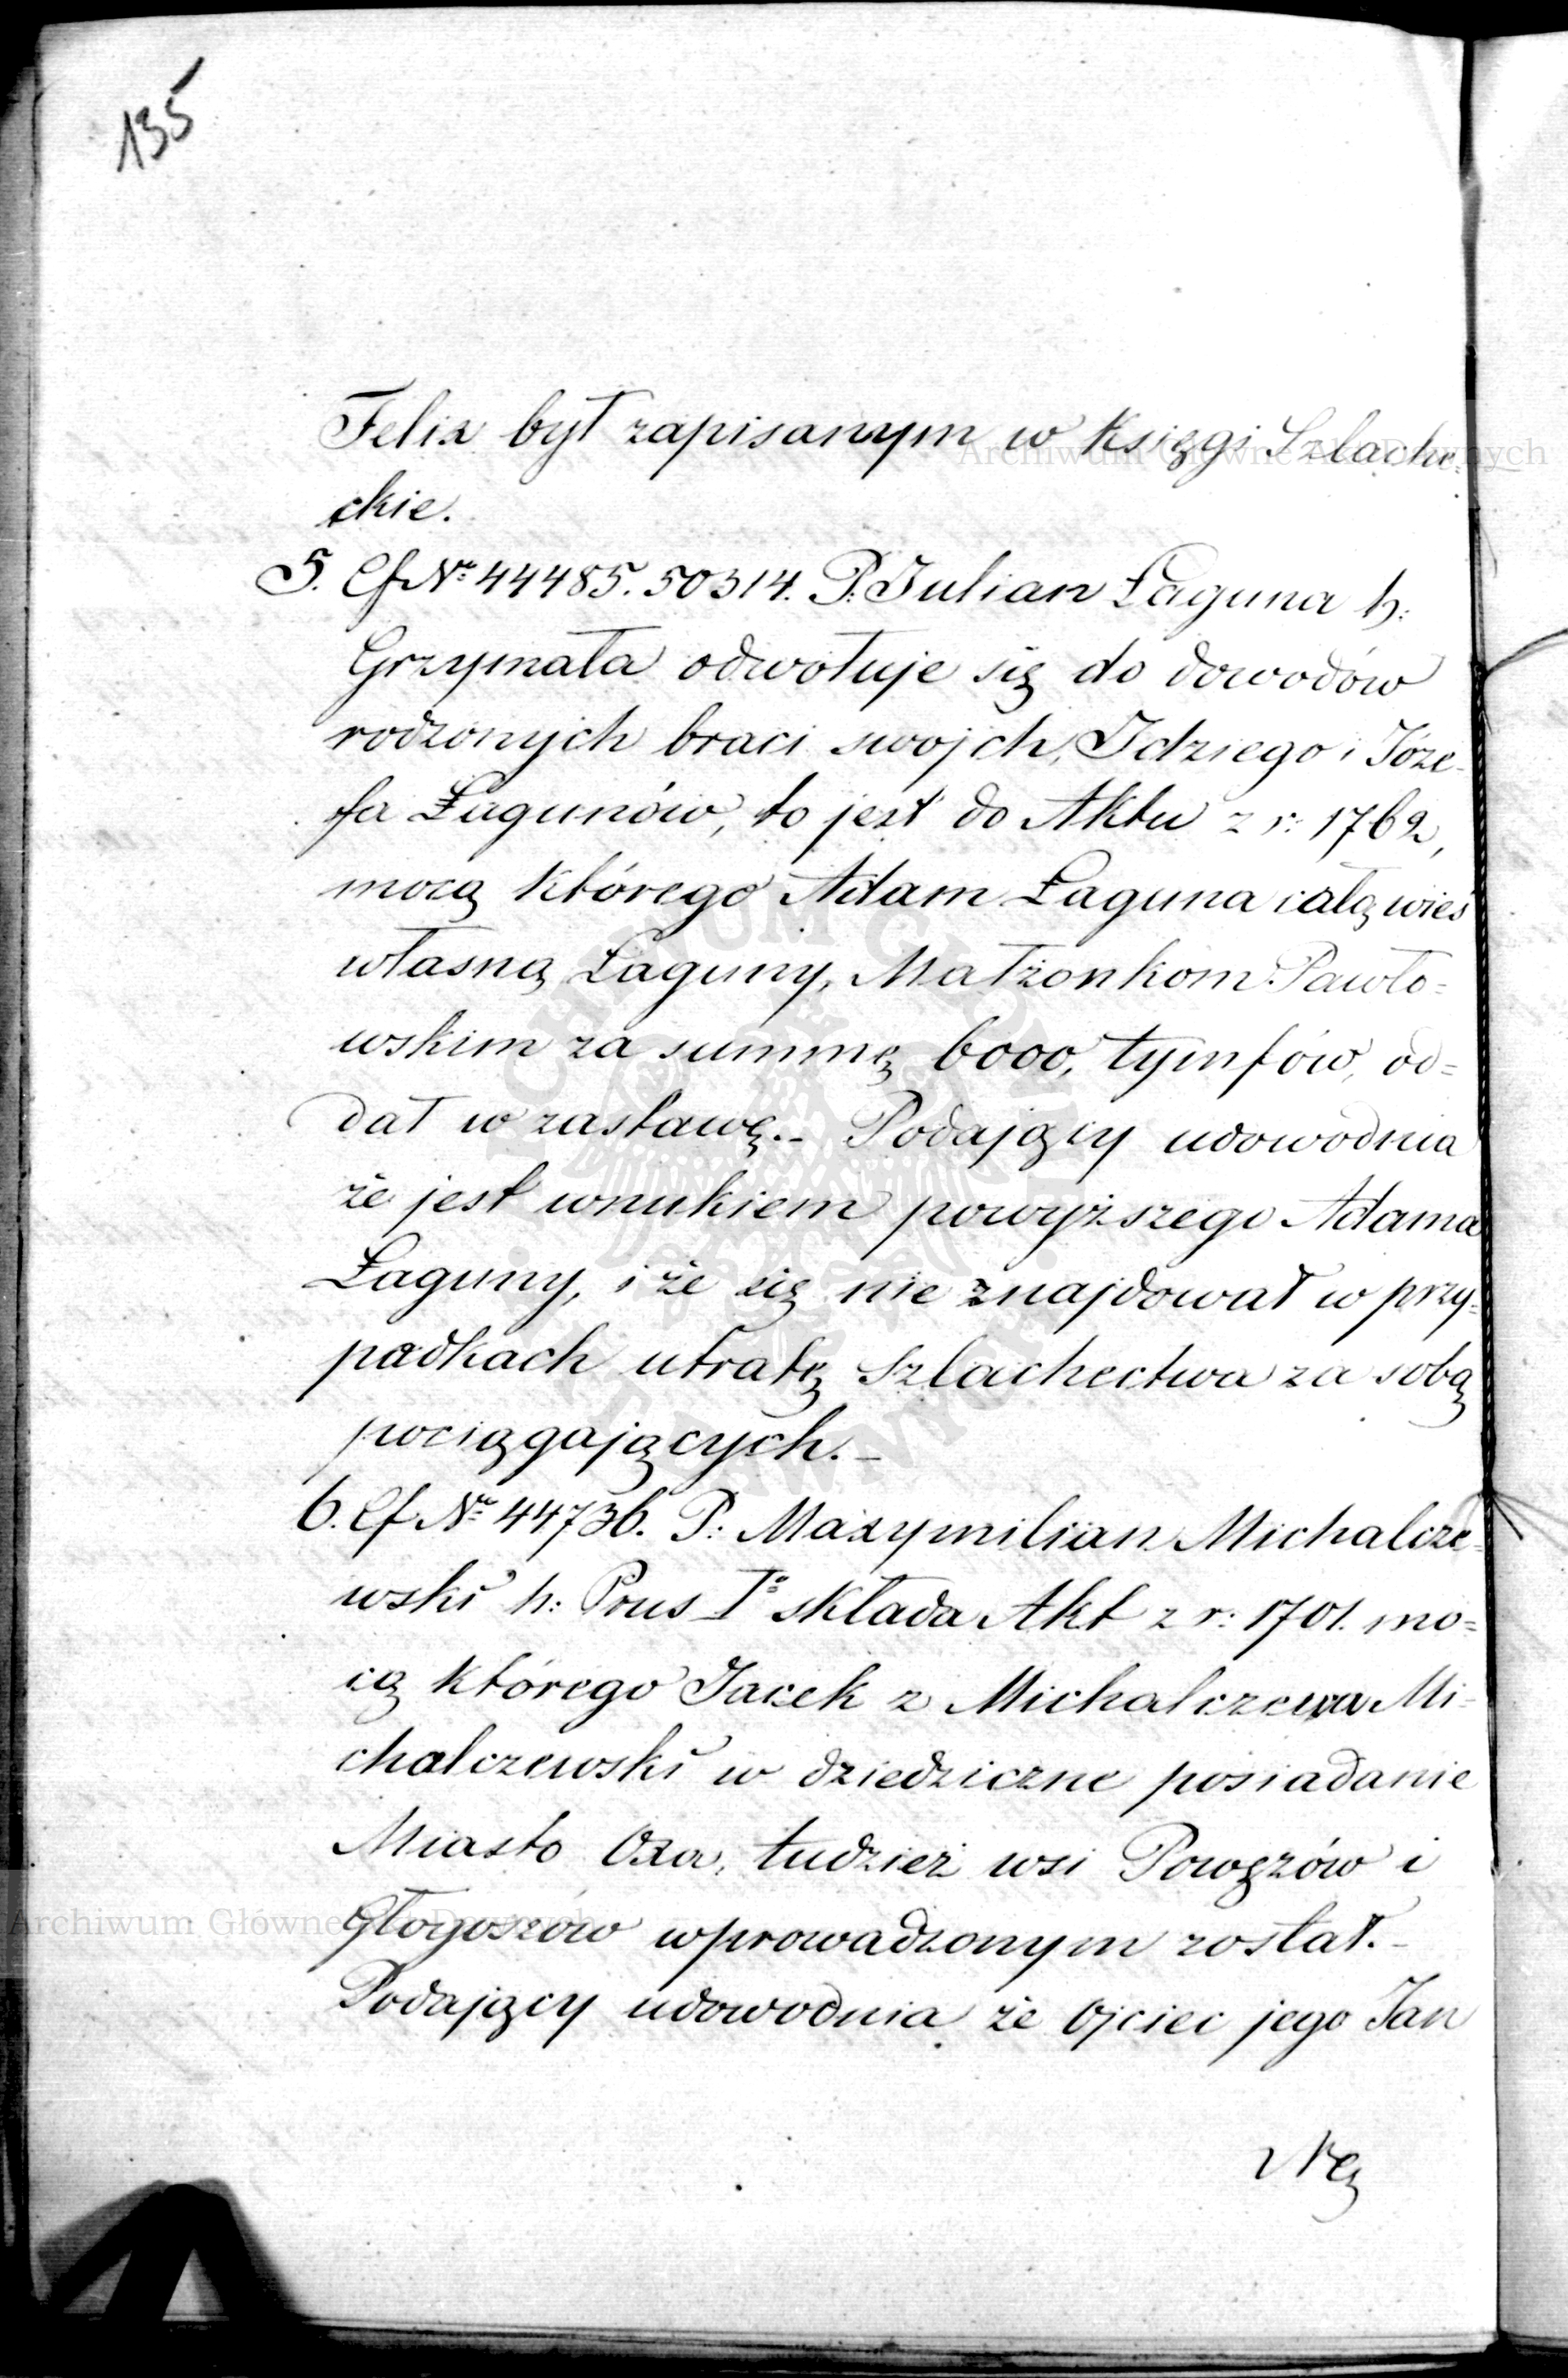 135
Felix był zapisanym w Księgi Szlache-
ckie.
5. Ef Nr 44485. 50314. P: Julian Łaguna h:
Grzymała odwołuje się do dowodów
rodzonych braci swojch, Idziego i Józe-
fa Łagunów, to jest do Aktu z r: 1762,
mocą którego Adam Łaguna całą wieś
własną Łaguny, Małżonkom Pawło=
wskim za summę 6000, tymfów, od=
dał w zastawę.- Podający udowodnia
że jest wnukiem powyższego Adama
Łaguny, i że się nie znajdował w przy=
padkach utratę Szlachectwa za sobą
pociągających.-
6. Ef Nr 44736. P: Maxymilian Michalcze=
wski h: Prus Io składa Akt z r: 1701. mo=
cą którego Jacek z Michalczewa Mi-
chalczewski w dziedziczne posiadanie
Miasto Oxa, tudzież wsi Powęzów i
Głogoszów wprowadzonym został.-
Podający udowodnia że Ojciec jego Jan
Archiwum Główne Akt Dawnych